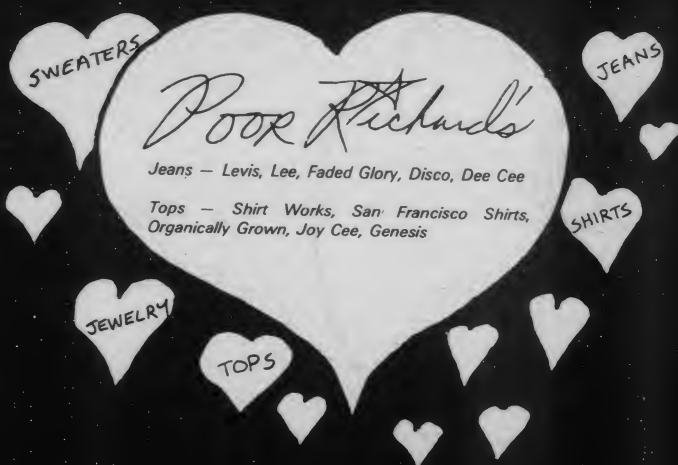 SWEATERS
JEANS
Poor Richard's
Jeans — Levis, Lee, Faded Glory, Disco, Dee Cee
Tops — Shirt Works, San Francisco Shirts,
Organically Grown, Joy Cee, Genesis
SHIRTS
JEWELRY
TOPS